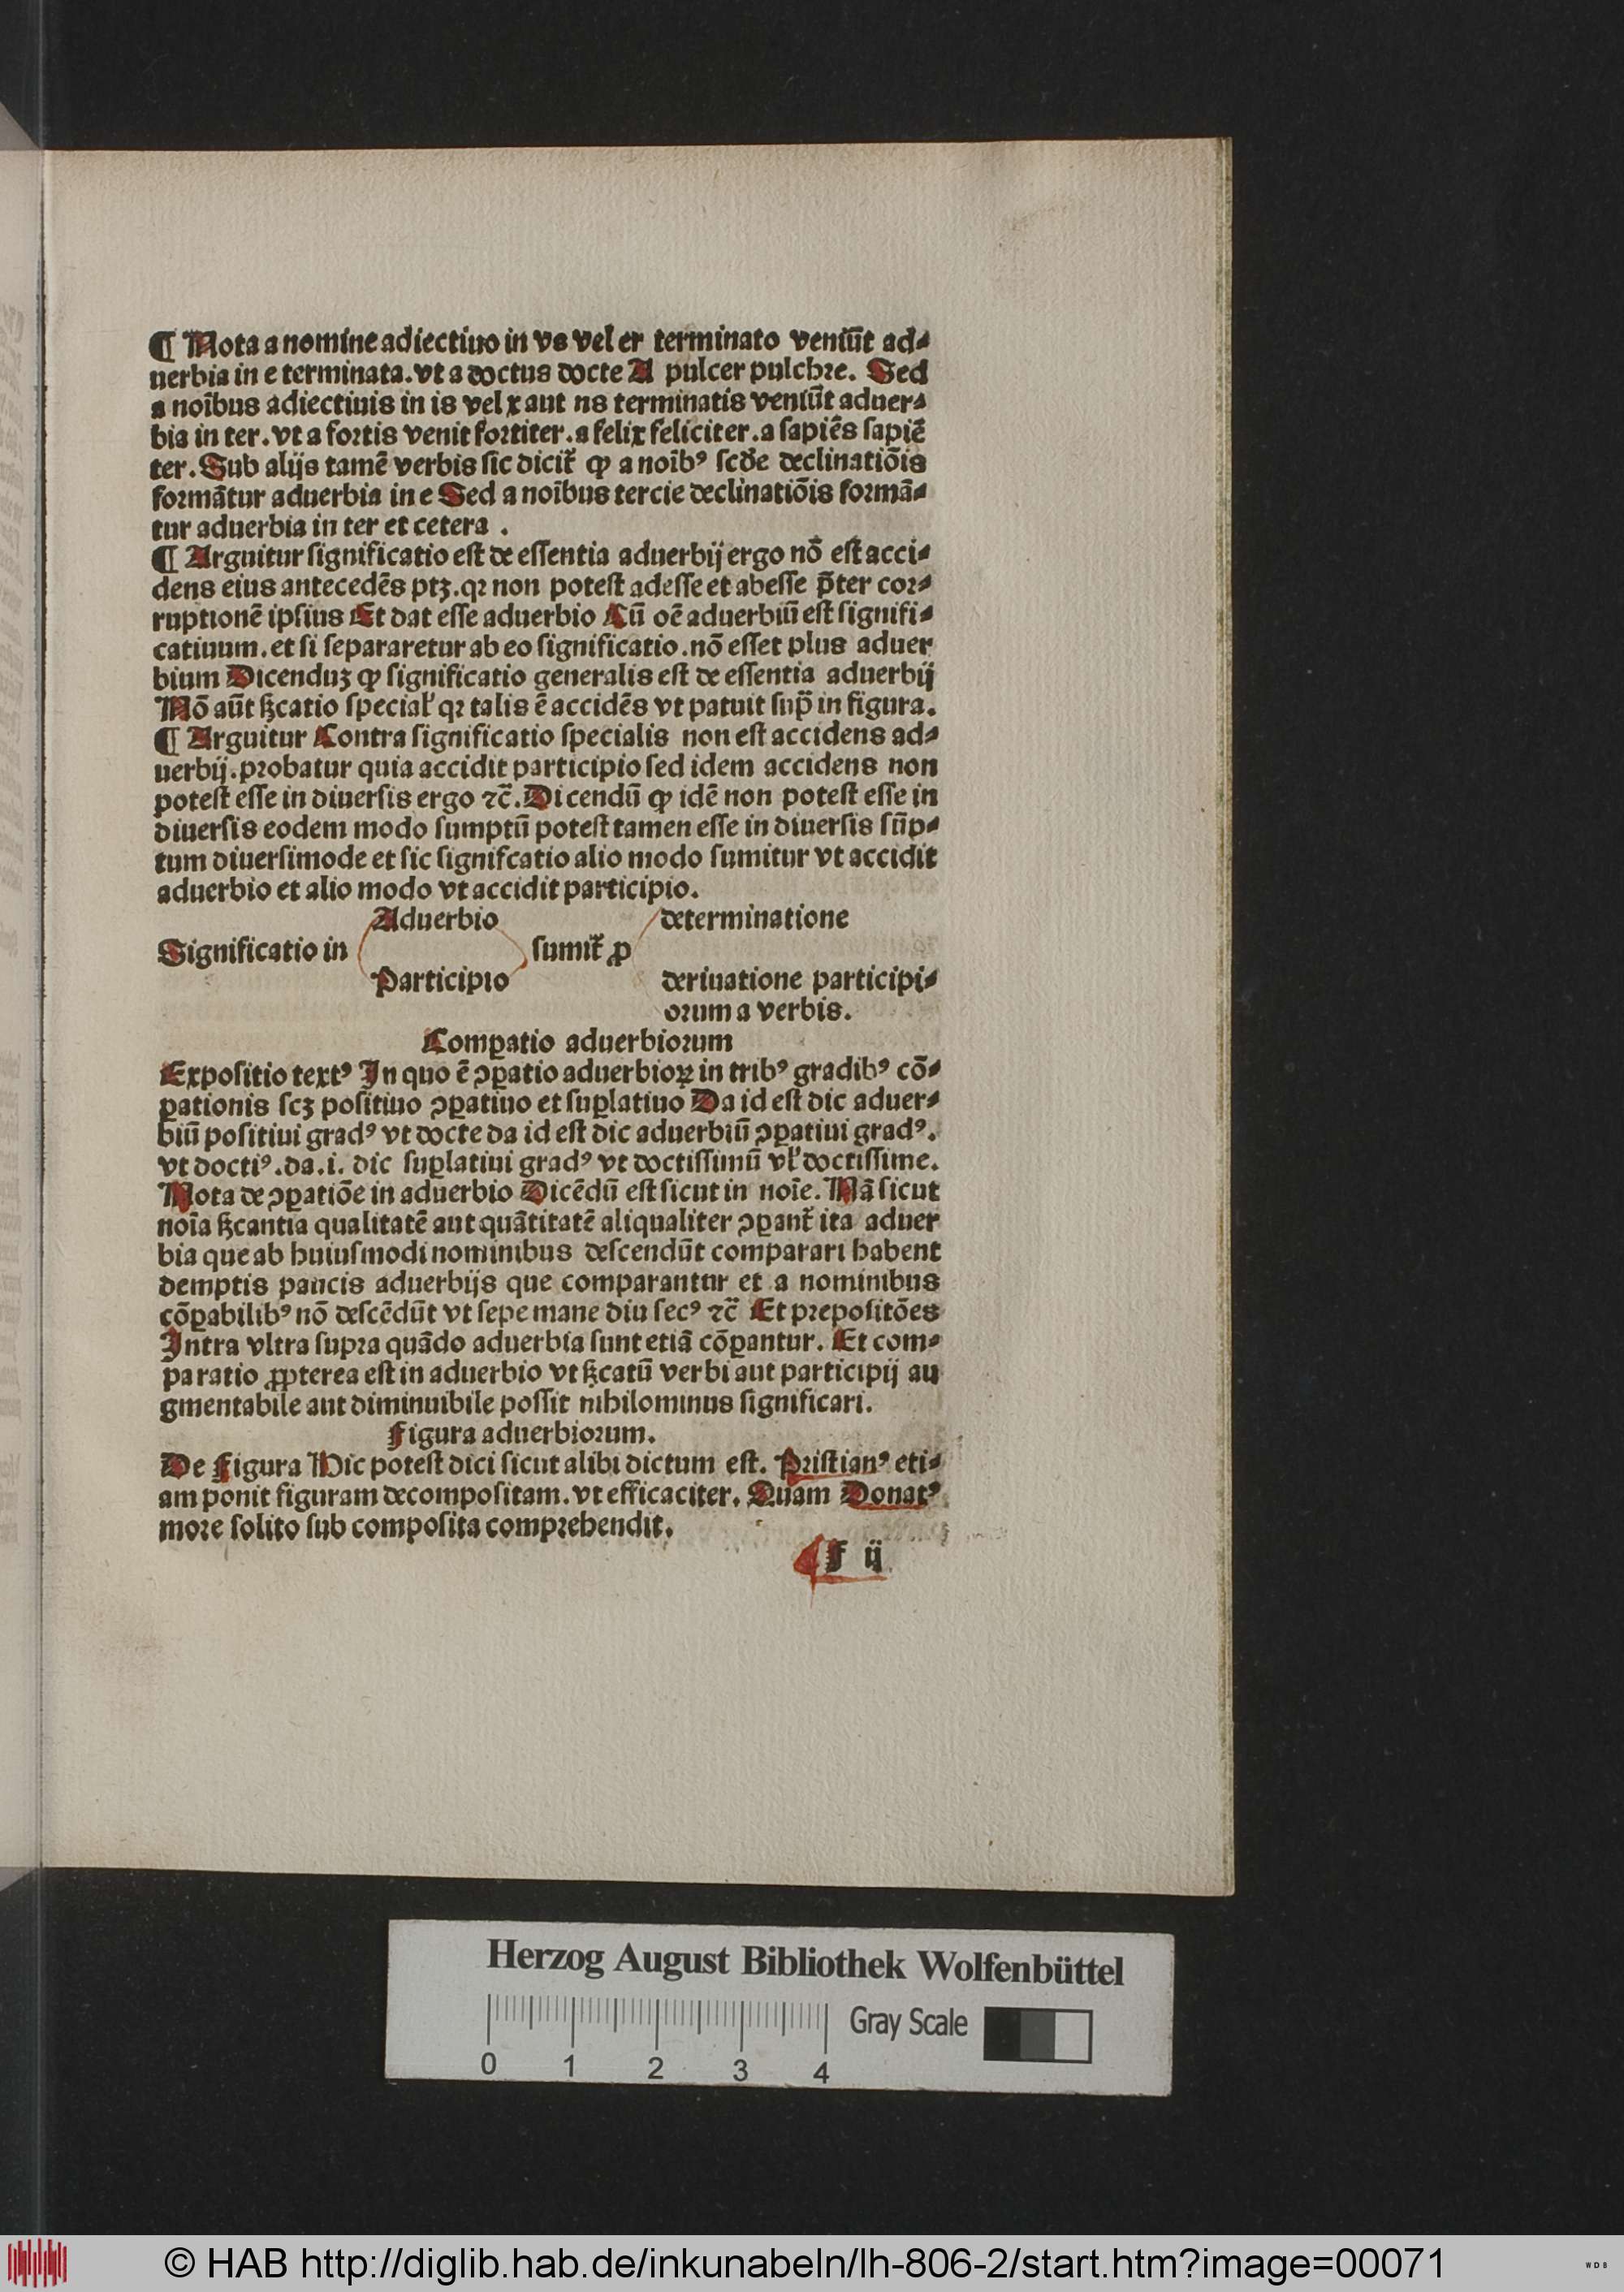 ¶ Nota a nomine adiectiuo in vs vel er terminato veniūt ad⸗
uerbia in e terminata. vt a doctus docte A pulcer pulchꝛe. Sed
a noībus adiectiuis in is vel x aut ns terminatis veniūt aduer⸗
bia in ter. vt a foꝛtis venit foꝛtiter. a felix feliciter. a ſapiēs ſapiē
ter. Sub alijs tamē verbis ſic dicit᷑ ꝙ a noībꝰ ſcd̄e declinatiōis
foꝛmātur aduerbia in e Sed a noībus tercie declinatiōis foꝛmā⸗
tur aduerbia in ter et cetera .
¶ Arguitur ſignificatio eſt de eſſentia aduerbij ergo nō eſt acci⸗
dens eius antecedēs ptꝫ. qꝛ non poteſt adeſſe et abeſſe p̄ter coꝛ⸗
ruptionē ipſius Et dat eſſe aduerbio Cū oē aduerbiū eſt ſignifi⸗
catiuum. et ſi ſepararetur ab eo ſignificatio. nō eſſet plus aduer
bium Dicenduꝫ ꝙ ſignificatio generalis eſt de eſſentia aduerbij
Nō aūt ſꝫcatio ſpecialꝉ qꝛ talis ē accidēs vt patuit ſup̄ in figura.
¶ Arguitur Contra ſignificatio ſpecialis non eſt accidens ad⸗
uerbij. pꝛobatur quia accidit participio ſed idem accidens non
poteſt eſſe in diuerſis ergo ⁊c̄. Dicendū ꝙ idē non poteſt eſſe in
diuerſis eodem modo ſumptū poteſt tamen eſſe in diuerſis ſūp⸗
tum diuerſimode et ſic ſignifcatio alio modo ſumitur vt accidit
aduerbio et alio modo vt accidit participio.
Aduerbio determinatione
Significatio in ſumit᷑ ꝓ
Participio deriuatione participi⸗
oꝛum a verbis.
Comꝑatio aduerbioꝛum
Expoſitio textꝰ In quo ē ꝯꝑatio aduerbioꝝ in tribꝰ gradibꝰ cō⸗
ꝑationis ſcꝫ poſitiuo ꝯꝑatiuo et ſuꝑlatiuo Da id eſt dic aduer⸗
biū poſitiui gradꝰ vt docte da id eſt dic aduerbiū ꝯꝑatiui gradꝰ.
vt doctiꝰ. da. i. dic ſuꝑlatiui gradꝰ vt doctiſſimū vꝉ doctiſſime.
Nota de ꝯꝑatiōe in aduerbio Dicēdū eſt ſicut in noīe. Nā ſicut
noīa ſꝫcantia qualitatē aut quātitatē aliqualiter ꝯꝑant᷑ ita aduer
bia que ab huiuſmodi nominibus deſcendūt comparari habent
demptis paucis aduerbijs que comparantur et a nominibus
cōꝑabilibꝰ nō deſcēdūt vt ſepe mane diu ſecꝰ ⁊c̄ Et pꝛepoſitōes
Intra vltra ſupꝛa quādo aduerbia ſunt etiā cōꝑantur. Et com⸗
paratio ꝓpterea eſt in aduerbio vt ſꝫcatū verbi aut participij au
gmentabile aut diminuibile poſſit nihilominus ſignificari.
Figura aduerbioꝛum.
De Figura Hic poteſt dici ſicut alibi dictum eſt. Pꝛiſtianꝰ eti⸗
am ponit figuram decompoſitam. vt efficaciter. Quam Donatꝰ
moꝛe ſolito ſub compoſita compꝛehendit.
F ij
Herzog August Bibliothek Wolfenbüttel
Gray Scale
0 1 2 3 4
© HAB http://diglib.hab.de/inkunabeln/lh-806-2/start.htm?image=00071
WDB